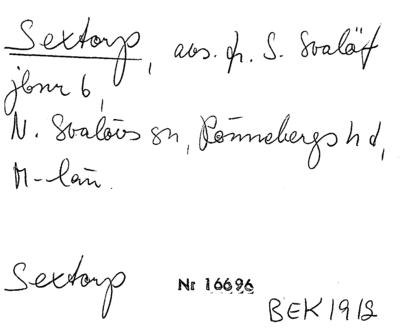 Sextorp, avs. fr. S. Svalöf
jbnr 6,
N. Svalövs sn, Rönnebergs hd,
M-län.
Sextorp Nr 16696
BEK 1912